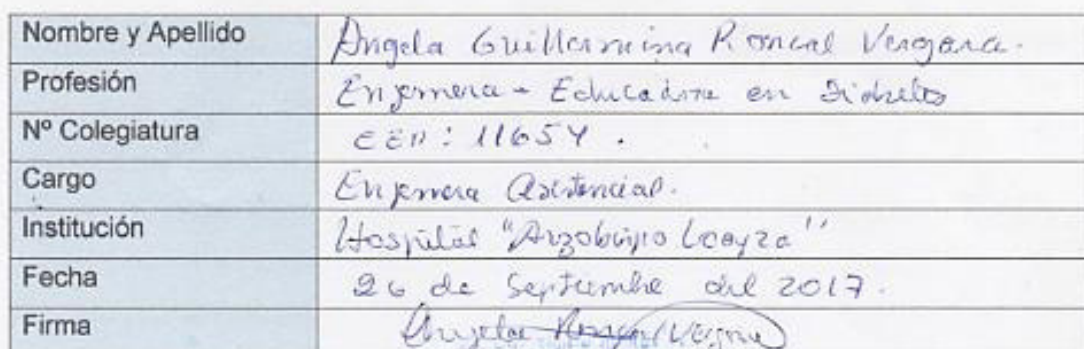 Nombre y Apellido Angela Guillermina Roncal Vergara.
Profesión Enfermera - Educadora en Diabetes
Nº Colegiatura CEP: 11654.
Cargo Enfermera Asistencial.
Institución Hospital "Arzobispo Loayza"
Fecha 26 de Septiembre del 2017.
Firma Angela Vergara